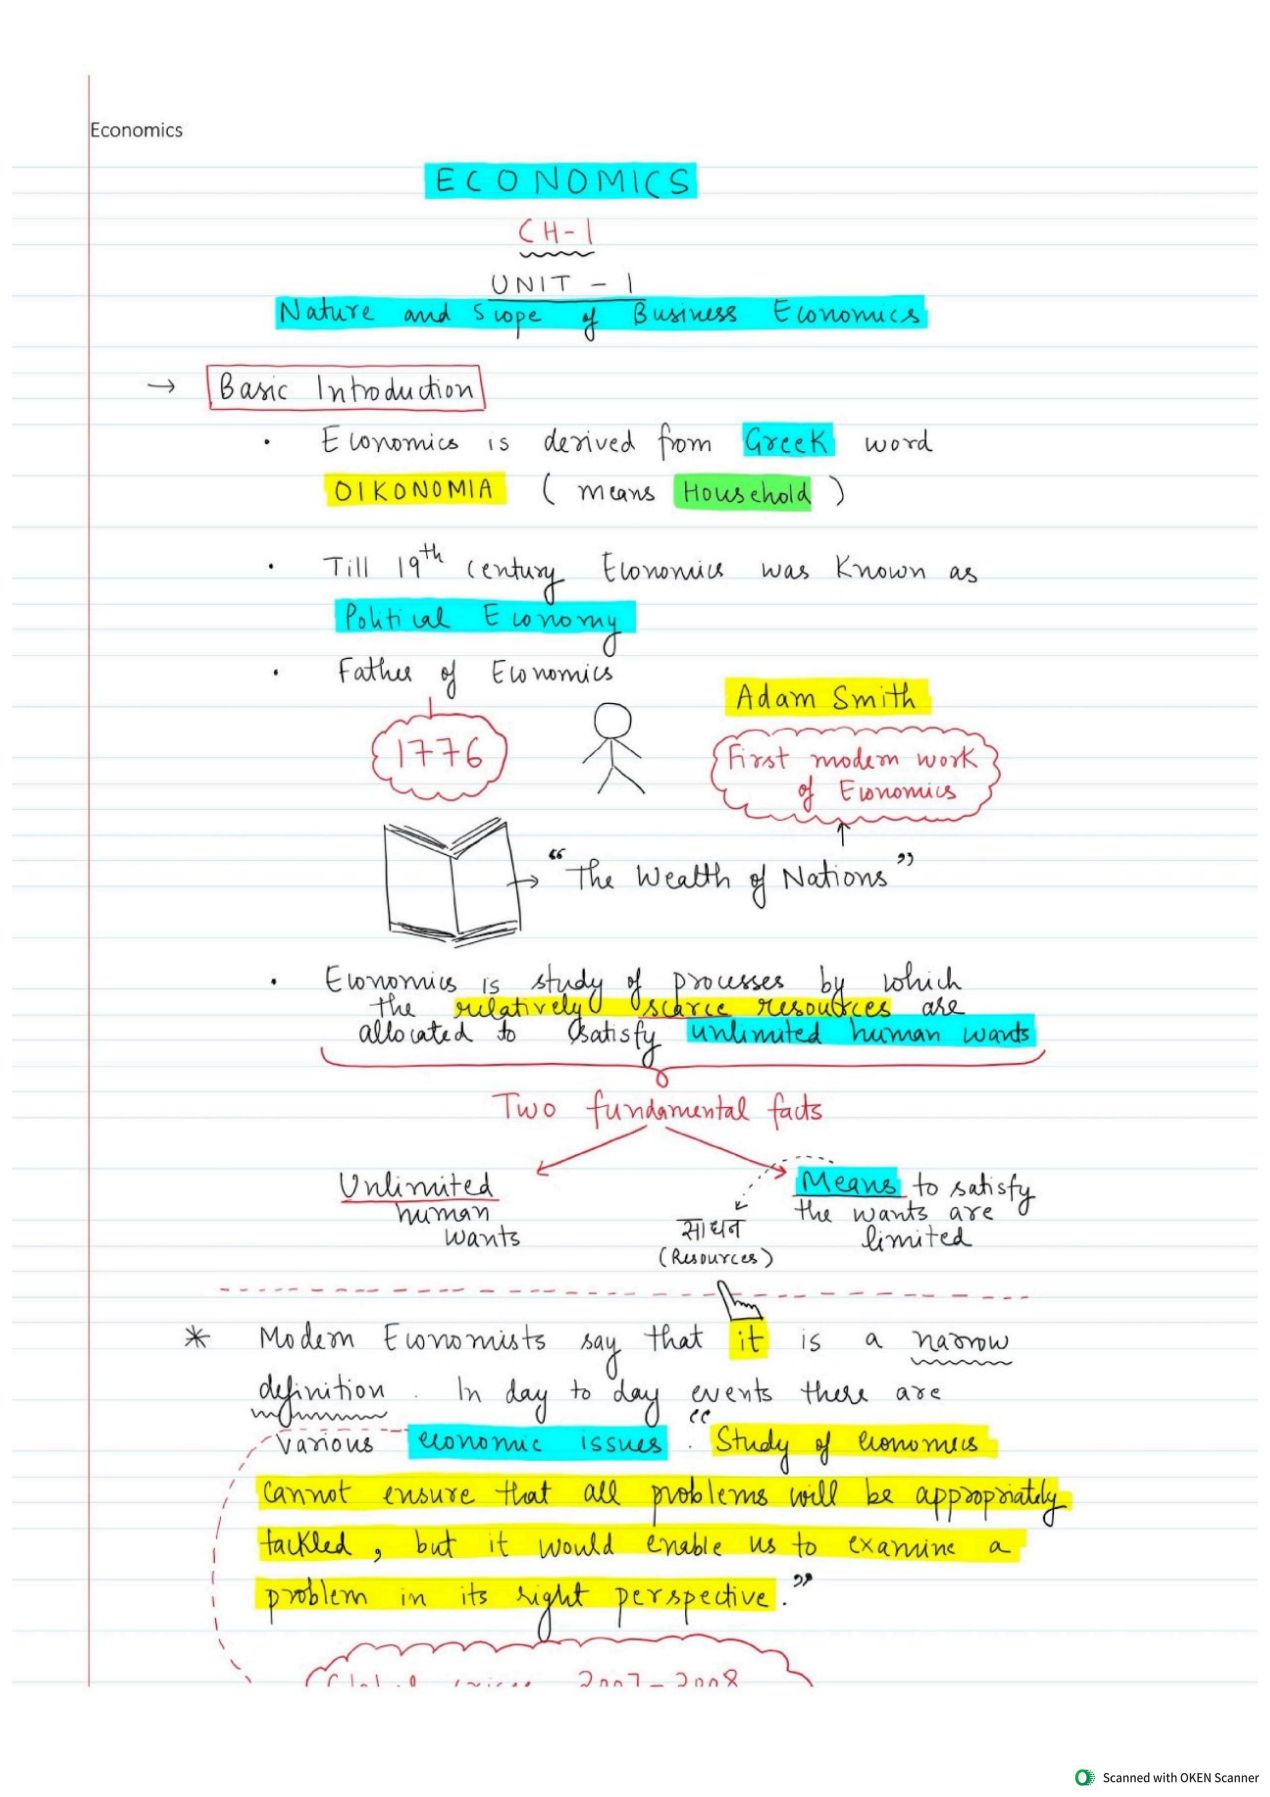 Economics
ECONOMICS
CH-1
UNIT - 1
Nature and Scope of Business Economics
→ Basic Introduction
• Economics is derived from Greek word
OIKONOMIA ( means Household )
• Till 19th century Economics was known as
Political Economy
• Father of Economics
Adam Smith
1776
First modern work
of Economics
“The Wealth of Nations”
• Economics is study of processes by which
the relatively scarce resources are
allocated to satisfy unlimited human wants
Two fundamental facts
Unlimited
human
wants
Means to satisfy
the wants are
limited
साधन
(Resources)
* Modern Economists say that it is a narrow
definition. In day to day events there are
various economic issues. “Study of economics
cannot ensure that all problems will be appropriately
tackled, but it would enable us to examine a
problem in its right perspective.”
2007-2008
Scanned with OKEN Scanner